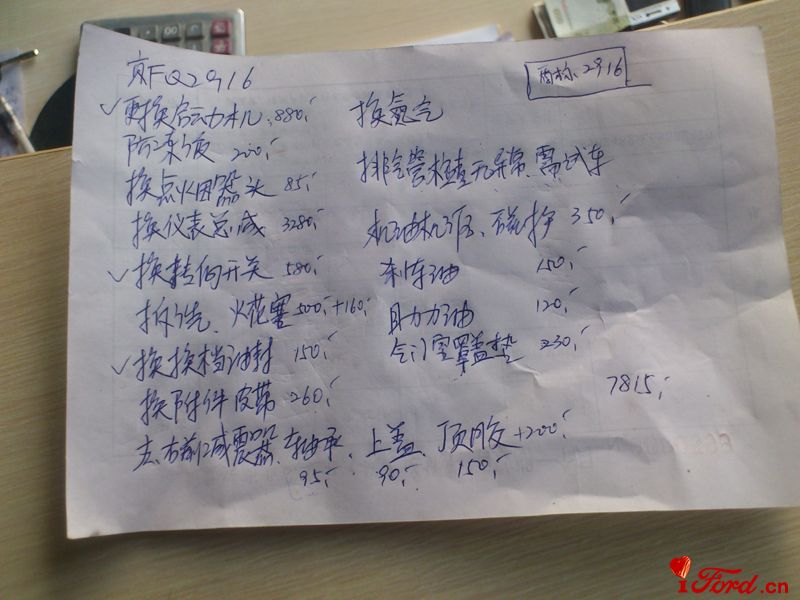 京FQ2916
商标: 2916
✓更换启动机 880,-
换氮气
防冻液 200,-
换点火团器头 85,-
排气管检查无异常、需试车
换仪表总成 3280,-
机油机滤、磁护 350,-
✓换转向开关 580,-
刹车油 150,-
拆洗、火花塞 500,-+160,-
助力油 120,-
✓换换档油封 150,-
气门室罩盖垫 230,-
换附件皮带 260,-
7815,-
左、右前减震器、轴承、上盖、顶胶+200,-
95,- 90,- 150,-
iFord.cn